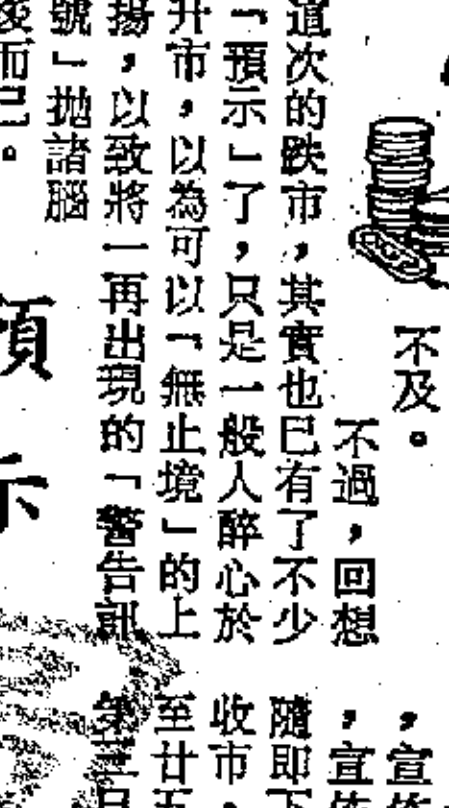 不及。
不過，回想
這次的跌市，其實也已有了不少
「預示」了，只是一般人醉心於
升市，以為可以「無止境」的上
揚，以致將一再出現的「警告訊
號」拋諸腦
後而已。
預示
，宣
，宣
隨即下
收市，
至廿五